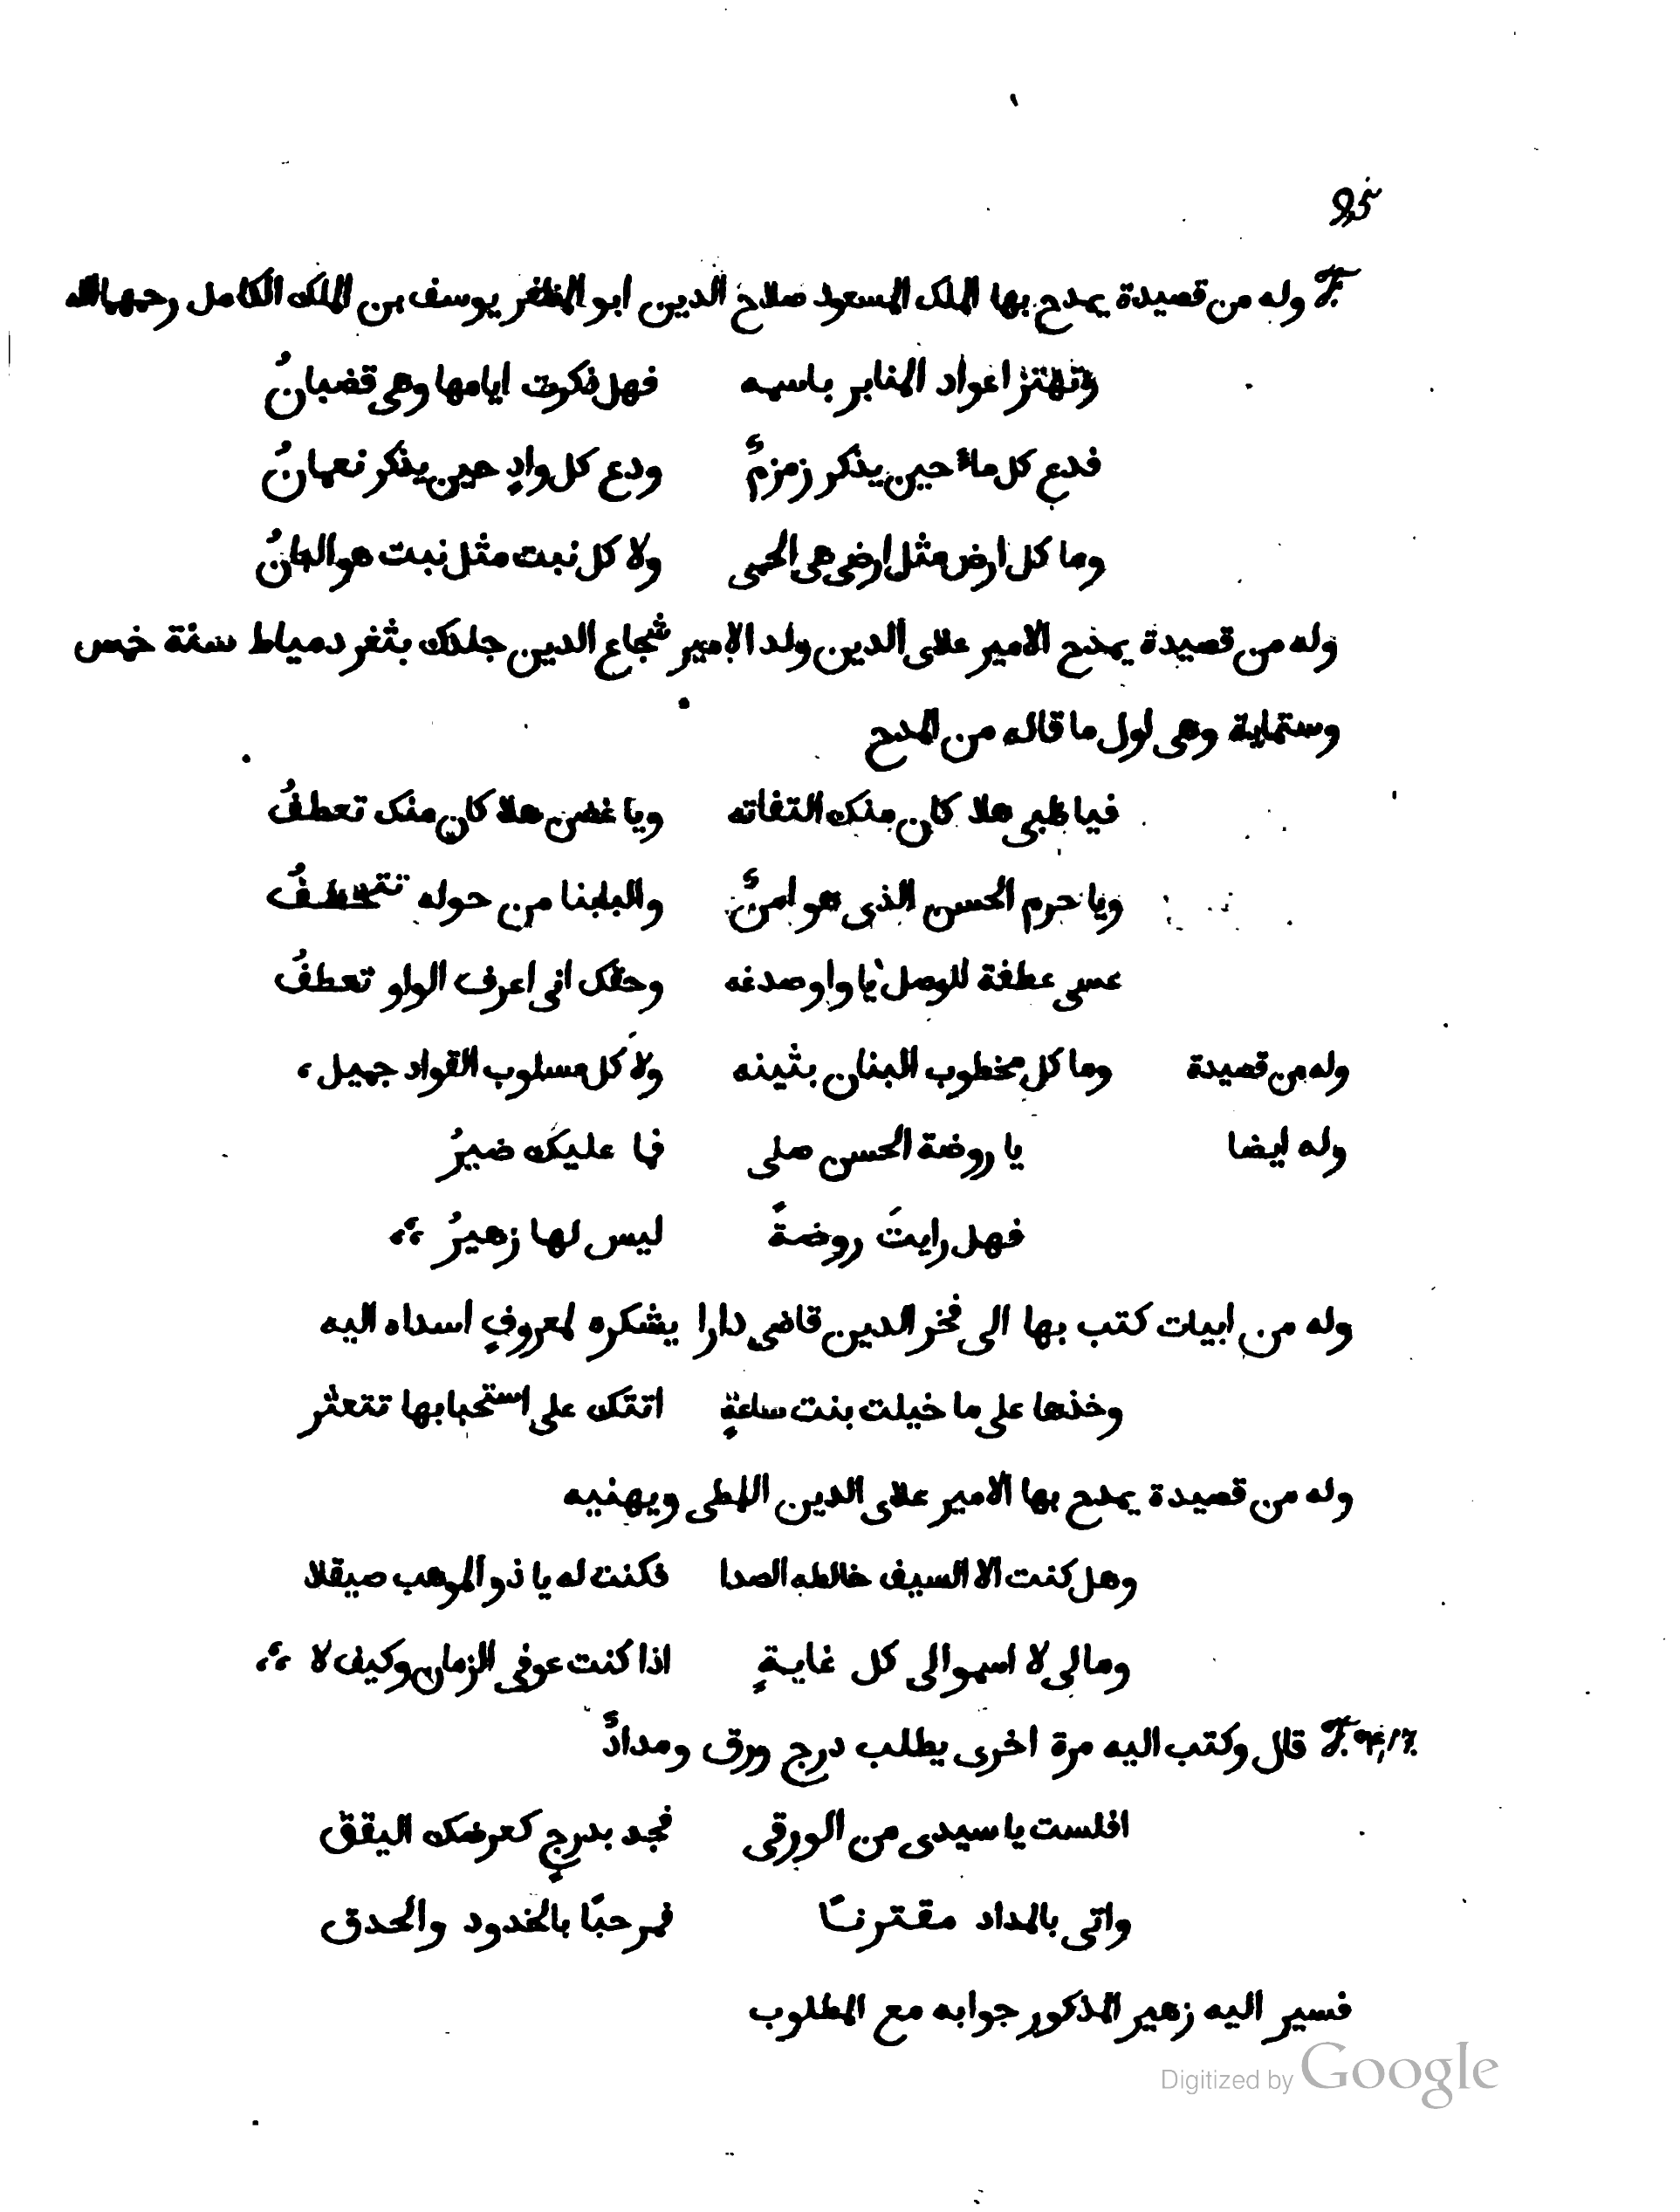 F. وله من قصيدة يمدح بها الملك المسعود صلاح الدين ابو المظفر يوسف بن الملك الكامل رحمهما الله
وتهتز اعواد المنابر باسمه فهل ذكرت ايامها وهى قضبانُ
فدع كل مآء حين يذكر زمزمٌ ودع كل وادٍ حين يذكر نعمانُ
وما كل ارض مثل ارض هى الحمى ولا كل نبت مثل نبت هو البانُ
وله من قصيدة يمدح الامير علاى الدين ولد الامير شجاع الدين جلدك بثغر دمياط سنة خمس
وستماية وهى اول ما قاله من المدح
فيا ظبى هلا كان منك التفاته ويا غضن هلا كان منك تعطفُ
ويا حرم الحسن الذى هو امنٌ والبابنا من حوله تتخطفُ
عسى عطفة للوصل يا واو صدغه وحقك انى اعرف الواو تعطفُ
وله من قصيدة وما كل مخطوب البنان بثينه ولا كل مسلوب الفواد جميل
وله ايضا يا روضة الحسن صلى فما عليك ضيرُ
فهل رايتَ روضةً ليس لها زهيرُ
وله من ابيات كتب بها الى فخر الدين قاضى دارا يشكره لمعروفٍ اسداه اليه
وخذها على ما خيلت بنت ساعةٍ اتتك على استحيابها تتعثر
وله من قصيدة يمدح بها الامير علاى الدين اللمطى ويهنيه
وهل كنت الا السيف خالطه الصدا فكنت له يا ذو المواهب صيقلا
ومالى لا اسموالى كل غايةٍ اذا كنت عوفى الزمان وكيف لا
F. قال وكتب اليه مرة اخرى يطلب درج ورق ومدادٌ
افلست يا سيدى من الورقى فجد بدرجٍ كعرضك اليقق
واتى بالمداد مقترنًا فمرحبًا بالخدود والحدق
فسير اليه زهير المذكور جوابه مع المطلوب
Digitized by Google